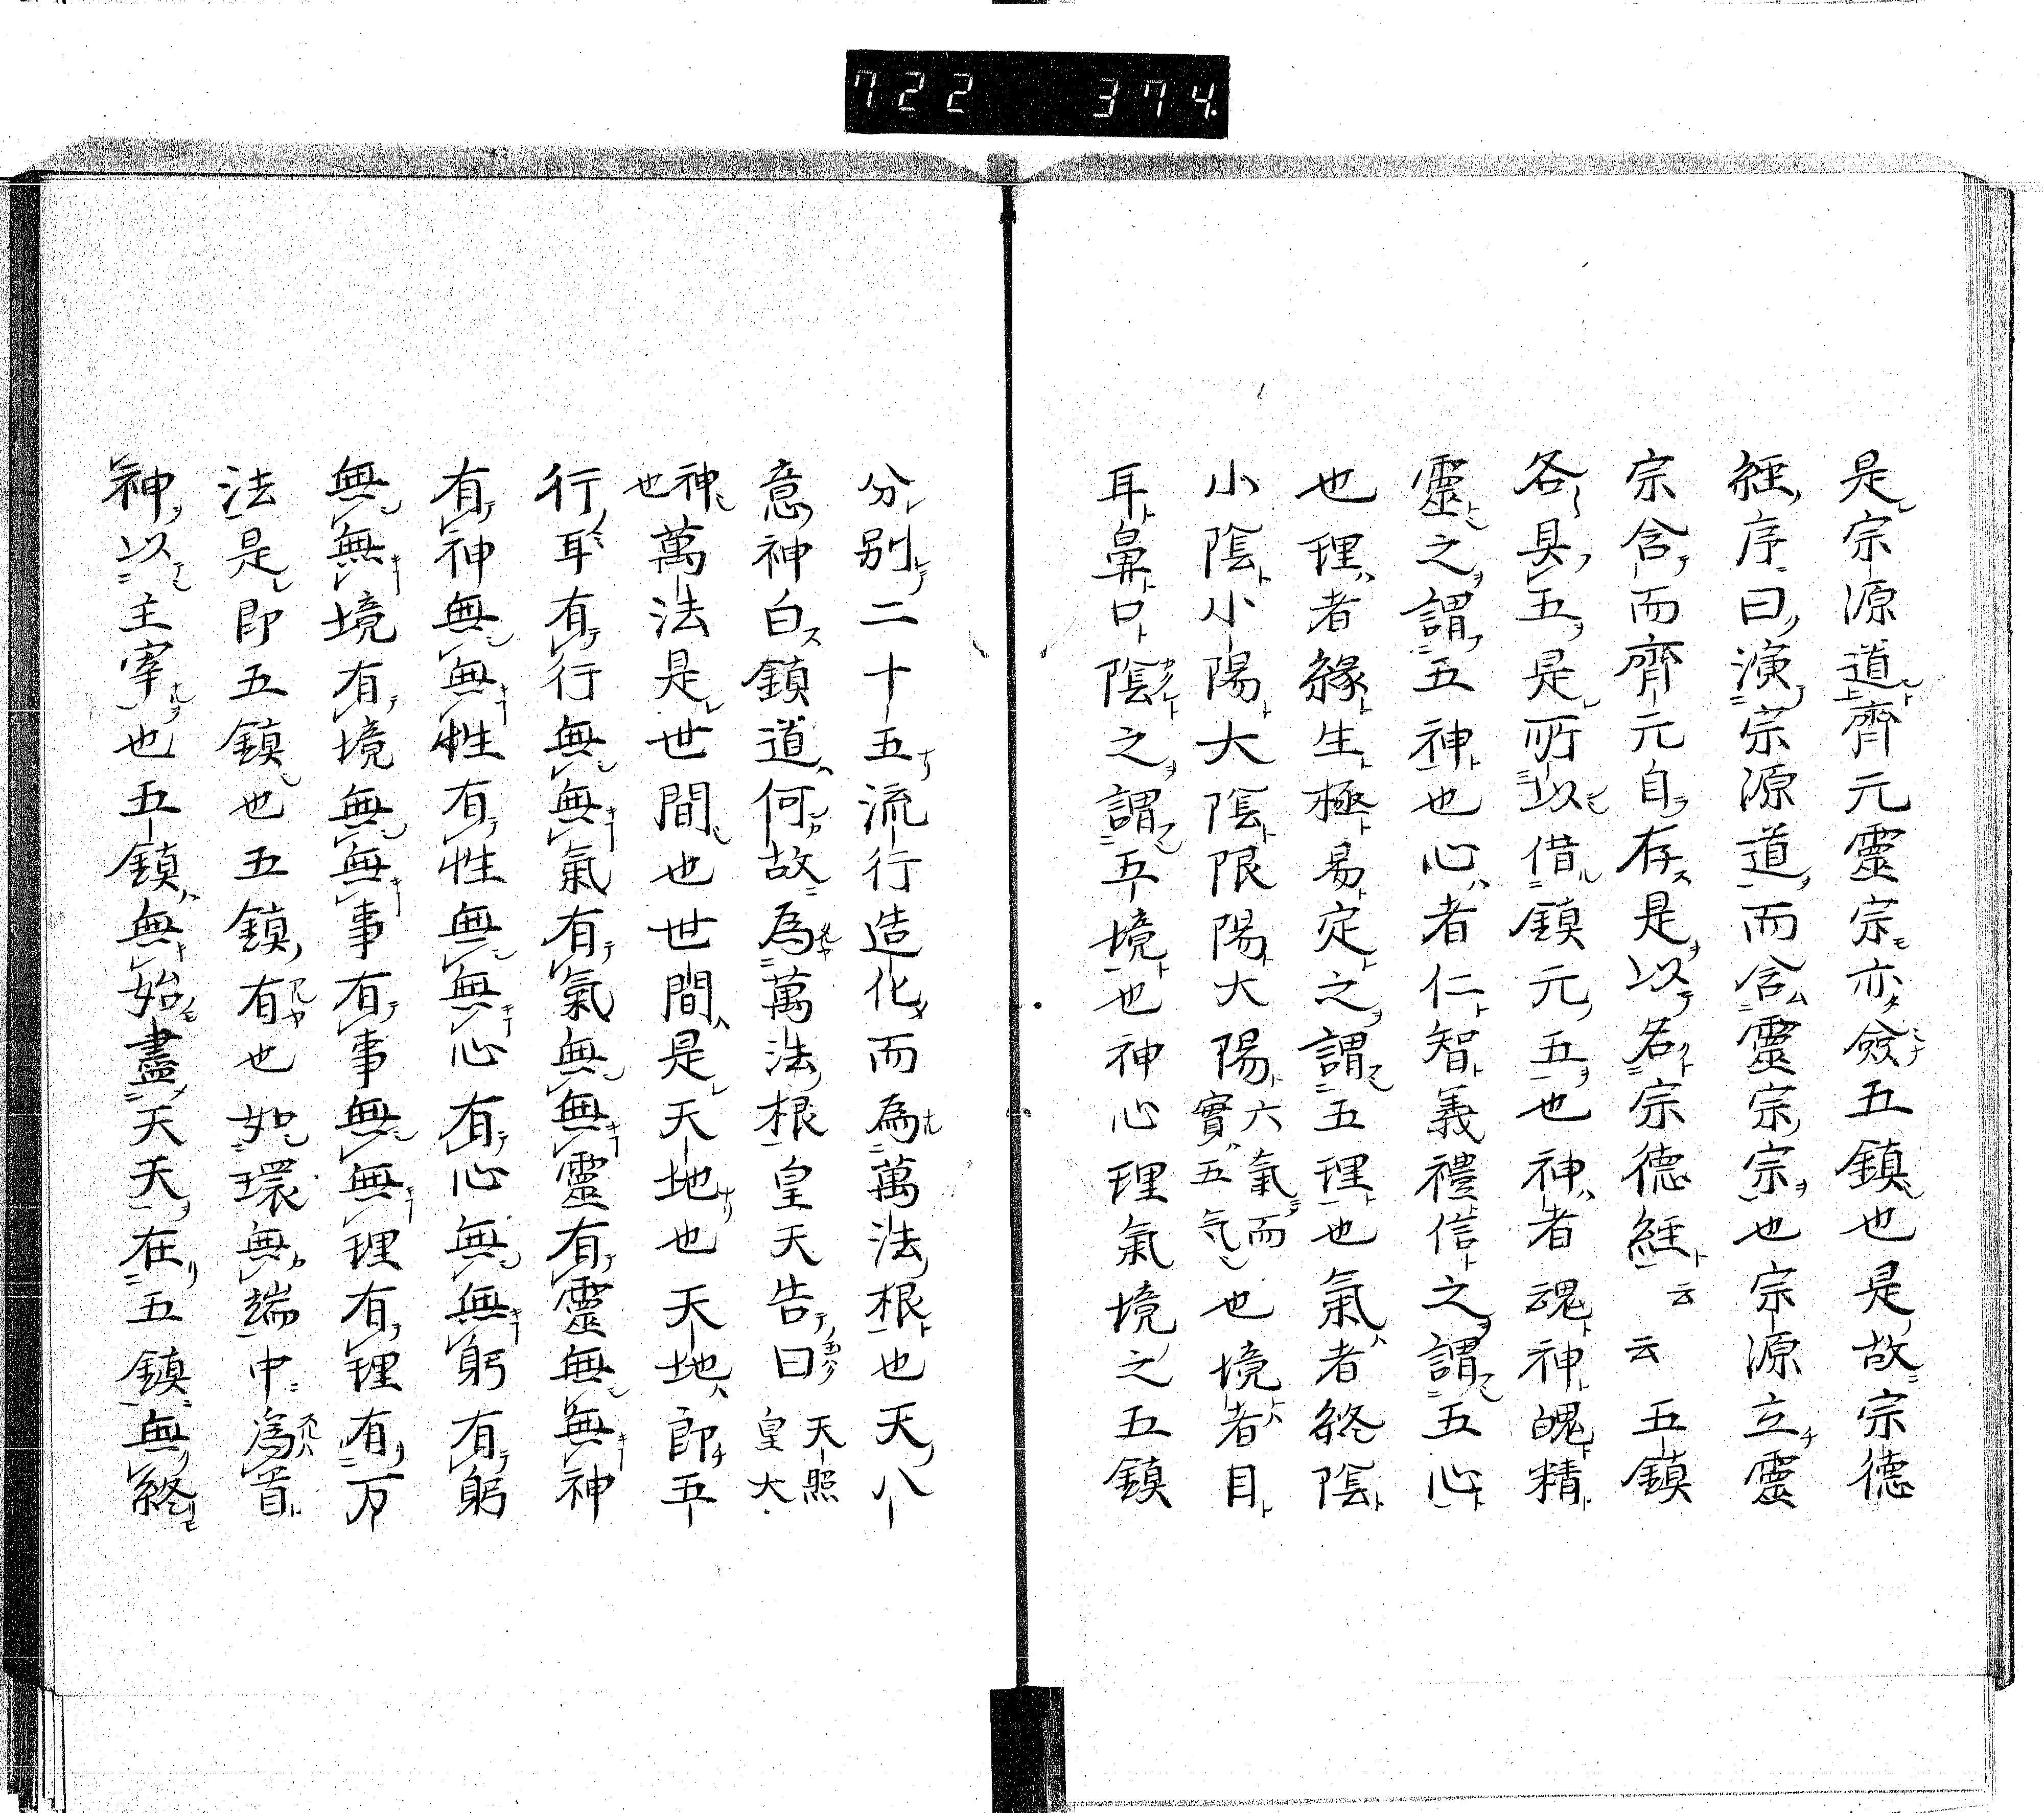 722 374.
是宗源道齊元靈宗亦僉五鎮也是故宗德
経序曰演宗源道而含靈宗宗也宗源立靈
宗含而齊元自存是以名宗徳経云云五鎮
各具五是所以借鎮元五也神者魂神魄精
靈之謂五神也心者仁智義禮信之謂五心
也理者緣生極易定之謂五理也氣者終陰
小陰小陽大陰限陽大陽六氣而實五気也境者目
耳鼻口陰之謂五境也神心理氣境之五鎮
分別二十五流行造化而為萬法根也天八
意神白鎮道何故為萬法根皇天告曰天照皇大
神也萬法是世間也世間是天地也天地即五
行耳有行無無氣有氣無無靈有靈無無神
有神無無性有性無無心有心無無躬有躬
無無境有境無無事有事無無理有理有万
法是即五鎮也五鎮有也如環無端中為首
神以主宰也五鎮無始盡天天在五鎮無終